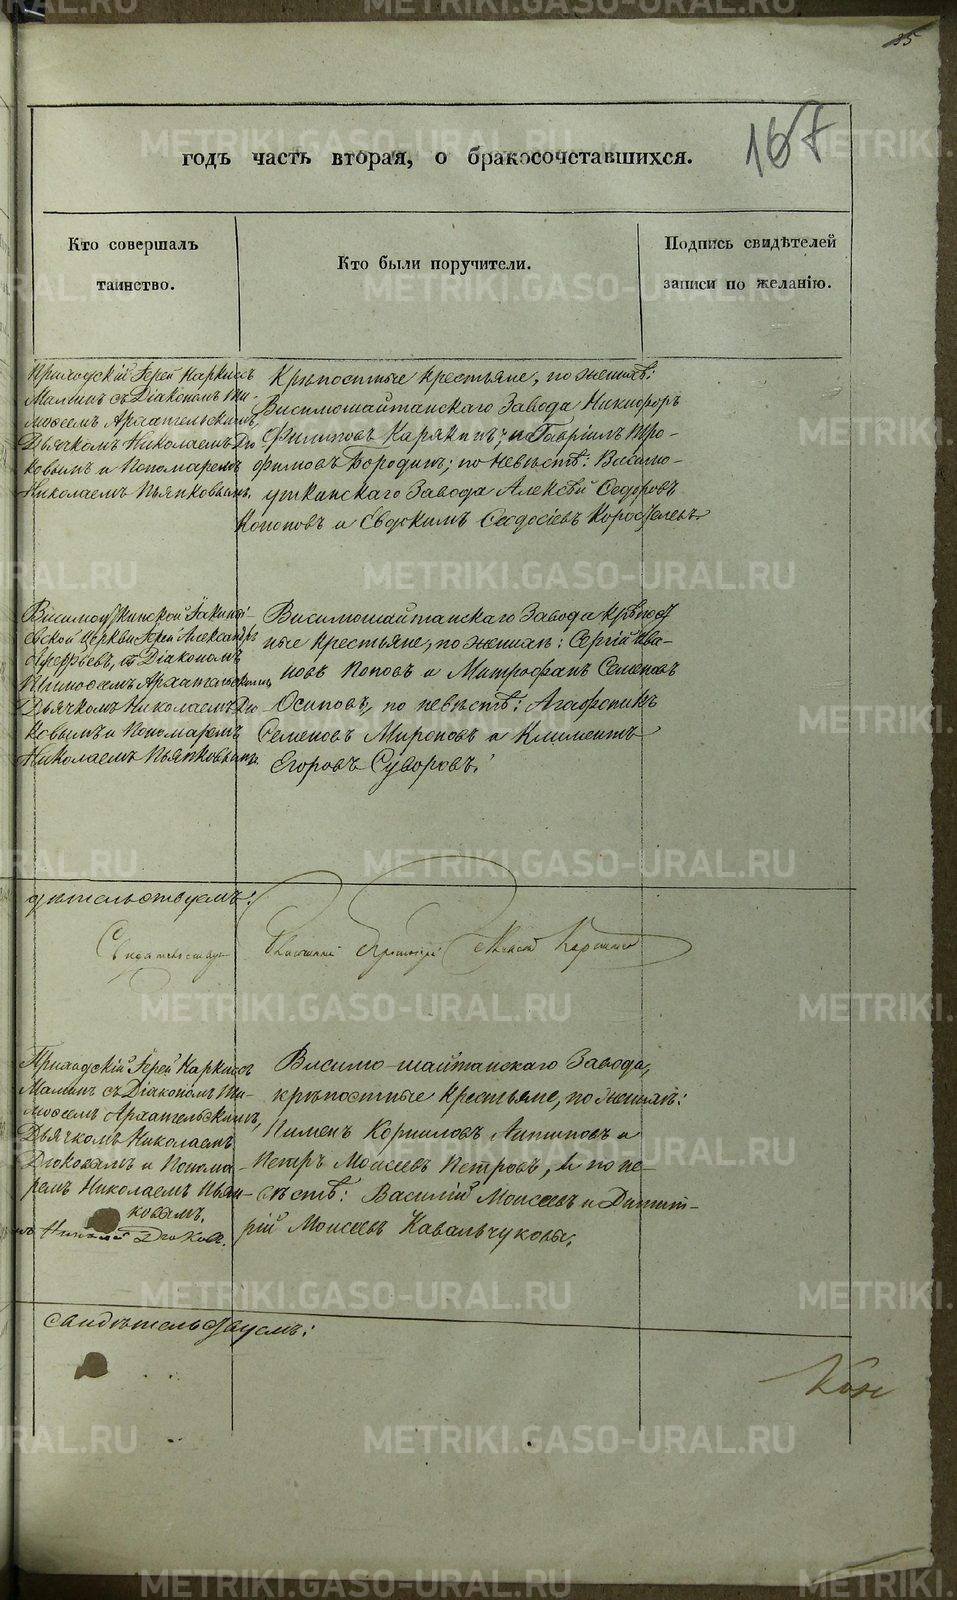 85
167
годъ часть вторая, о бракосочетавшихся.
Кто совершалъ
таинство.
Кто были поручители.
Подпись свидѣтелей
записи по желанію.
Приходскій Іерей Наркисъ
Малинъ съ Діакономъ Ти-
мофеемъ Архангельскимъ,
Дьячкомъ Николаемъ Дю-
ковымъ и Пономаремъ
Николаемъ Пьянковымъ.
Крѣпостные крестьяне, по женихѣ:
Висимошайтанскаго Завода Никифоръ
Филиповъ Карякинъ; и Гавріилъ Тро-
фимовъ Бородинъ; по невѣстѣ: Висимо-
уткинскаго Завода Алексѣй Федоровъ
Кононовъ и Евдокимъ Феодосіевъ Коростелевъ.
Висимоуткинской Іакинфі-
евской церкви Іерей Александръ
Арефьевъ, съ Діакономъ
Тимофеемъ Архангельскимъ,
Дьячкомъ Николаемъ Дю-
ковымъ и Пономаремъ
Николаемъ Пьянковымъ.
Висимошайтанскаго Завода крѣпост-
ные крестьяне, по женихѣ: Сергій Ива-
новъ Поповъ и Митрофанъ Семеновъ
Осиповъ, по невѣстѣ: Агафоникъ
Семеновъ Мироновъ и Климентъ
Егоровъ Суворовъ.
дѣтельствуемъ:
Свидѣтельствую Благочинный Протоіерей
Приходскій Іерей Наркисъ
Малинъ съ Діакономъ Ти-
мофеемъ Архангельскимъ,
Дьячкомъ Николаемъ
Дюковымъ и Понома-
ремъ Николаемъ Пьян-
ковымъ.
Николай Дюковъ.
Висимо-шайтанскаго Завода,
крѣпостные крестьяне, по женихѣ:
Пименъ Корниловъ Антиповъ и
Петръ Моисеевъ Петровъ, и по не-
вѣстѣ: Василій Моисеевъ и Димит-
рій Моисеевъ Кавальчуковы.
свидѣтельствуемъ:
METRIKI.GASO-URAL.RU